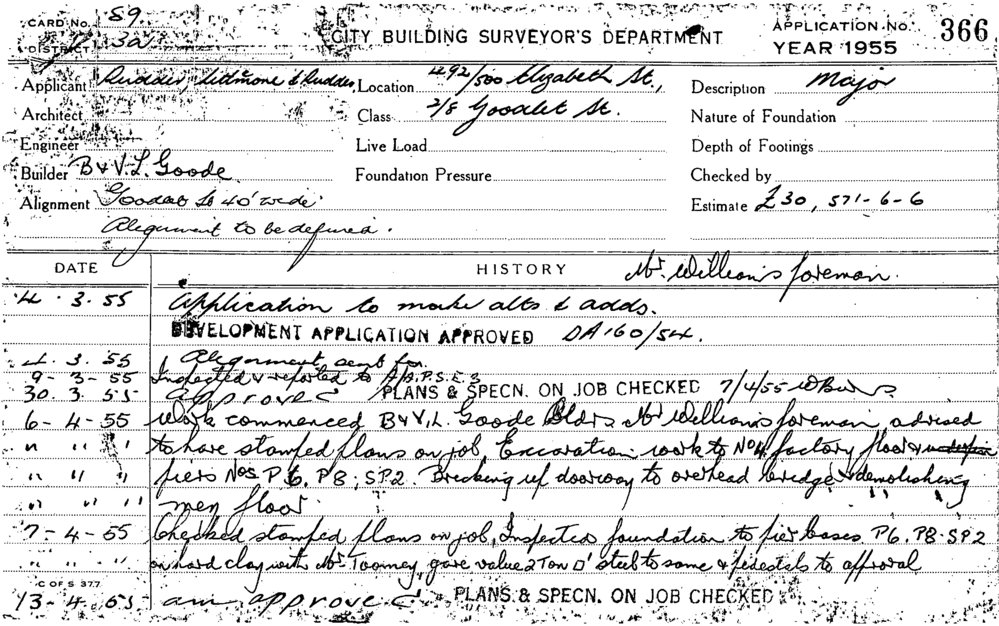 CARD No. 89
DISTRICT 3a
CITY BUILDING SURVEYOR'S DEPARTMENT
APPLICATION No. 366
YEAR 1955
Applicant Rudder, & Rudder
Location 492/500 Elizabeth St.,
Description Major
Architect
Class 2/8 Goodlet St.
Nature of Foundation
Engineer
Live Load
Depth of Footings
Builder B & V.L. Goode
Foundation Pressure
Checked by
Alignment St 40' wide.
Estimate £30,571-6-6
Alignment to be defined.
DATE
HISTORY
Mr. Williams foreman.
4.3.55 Application to make alts & adds.
DEVELOPMENT APPLICATION APPROVED DA 160/54.
4.3.55 Alignment sent for.
9-3-55 Inspected & reported to
30.3.55 approved PLANS & SPECN. ON JOB CHECKED 7/4/55
6-4-55 Work commenced B & V.L. Goode Bldrs Mr Williams foreman, advised
" " " to have stamped plans on job. Excavation work to No 4 factory floor &
" " " piers Nos P6, P8, SP2. Breaking up doorway to overhead bridge & demolishing
" " " mezz floor
7-4-55 Checked stamped plans on job, Inspected foundation to pier bases P6, P8. SP2
" " " on hard clay with Mr. Toomey, gave value 2 Ton □' steel to same & pedestals to approval
C OF S 377
13-4-55 am approved PLANS & SPECN. ON JOB CHECKED